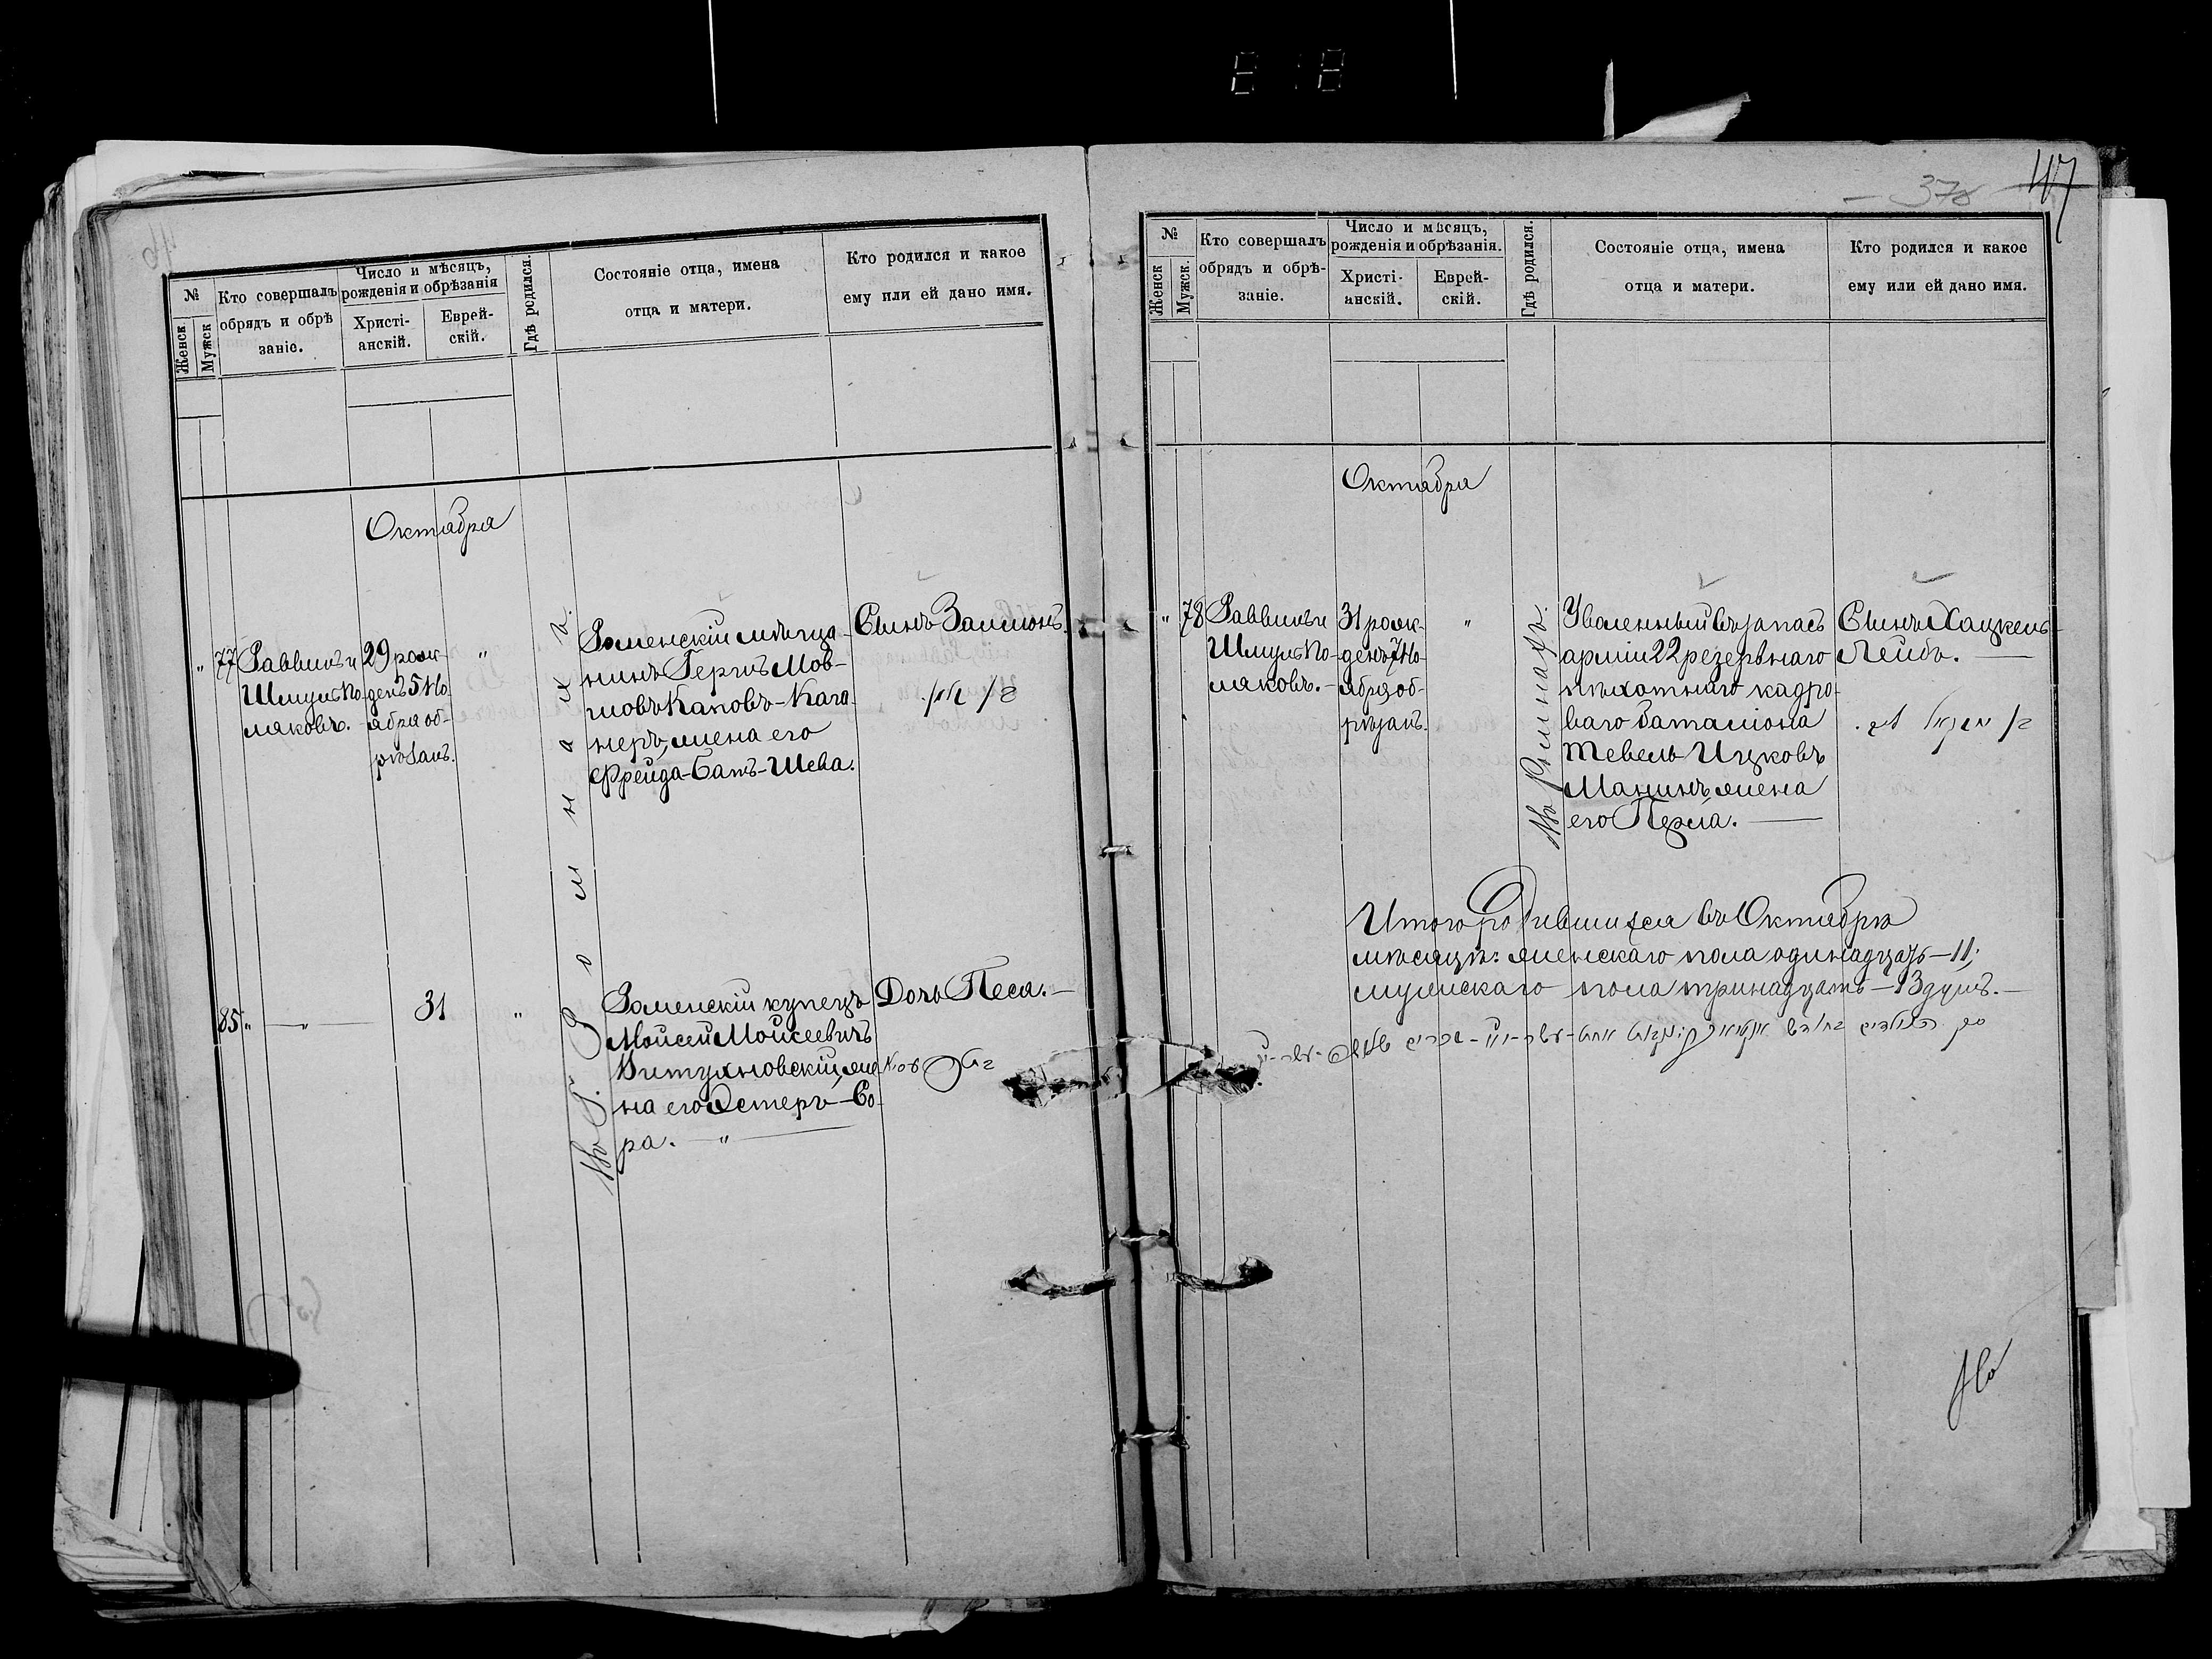 №
Женск
Мужск
Кто совершалъ
обрядъ и обрѣ
заніе.
Число и мѣсяцъ,
рожденія и обрѣзанія
Христі-
анскій.
Еврей-
скій.
Гдѣ родился.
Состояніе отца, имена
отца и матери.
Кто родился и какое
ему или ей дано имя.
Октября
" 77
Раввинъ и
Шмулъ По-
ляковъ.
29 рож-
денъ 5 Но-
ября об-
рѣзанъ.
"
Въ г. Ромнахъ.
Роменскій мѣща-
нинъ Герцъ Мов-
шовъ Кановъ-Кага-
неръ, жена его
Фрейда-Батъ-Шева.
Сынъ Залмонъ.
85 "
"
31
"
Роменскій купецъ
Мойсей Мойсеевичъ
Витухновскій, же-
на его Эстеръ-Со-
ра. "
Дочь Песя.
47
37
№
Женск
Мужск.
Кто совершалъ
обрядъ и обрѣ-
заніе.
Число и мѣсяцъ,
рожденія и обрѣзанія.
Христі-
анскій.
Еврей-
скій.
Гдѣ родился.
Состояніе отца, имена
отца и матери.
Кто родился и какое
ему или ей дано имя.
Октября
" 78
Раввинъ и
Шмулъ По-
ляковъ.
31 рож-
денъ 7 Но-
ября об-
рѣзанъ.
"
Въ Ромнахъ.
Уволенный въ запасъ
арміи 22 резервнаго
пѣхотнаго кадро-
ваго баталіона
Тевель Ицковъ
Манинъ, жена
его Перла.
Сынъ Хацкель-
Лейбъ.
Итого родившихся въ Октябрѣ
мѣсяцѣ: женскаго пола одинадцать—11;
мужскаго пола тринадцать—13 душъ.